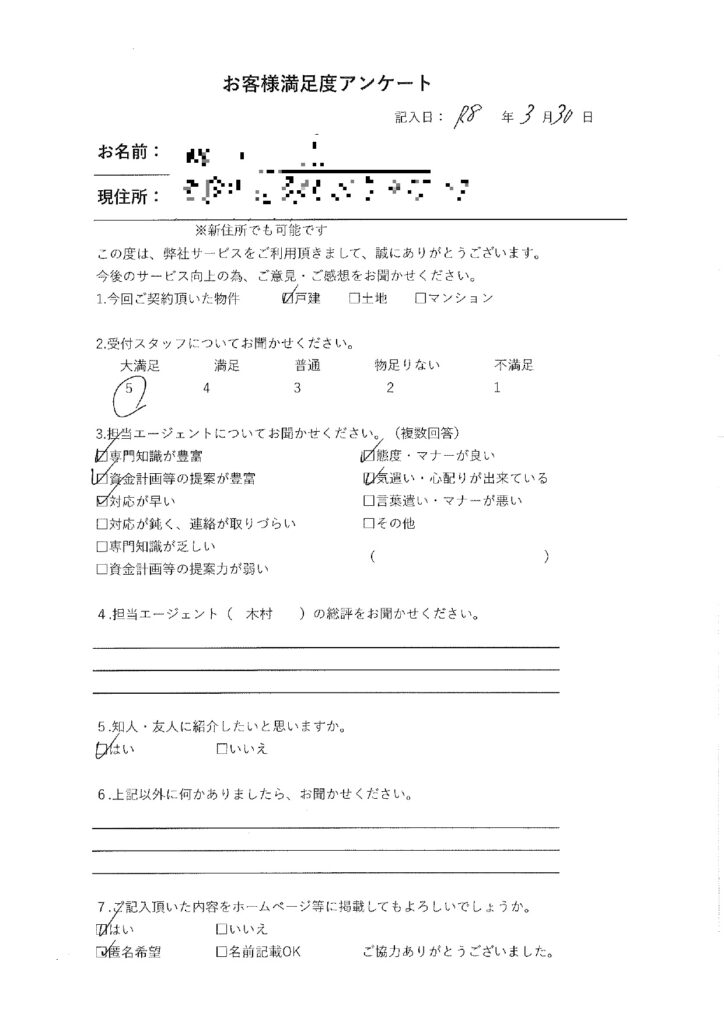 お客様満足度アンケート
記入日： R8 年 3 月 30 日
お名前：
現住所：
※新住所でも可能です
この度は、弊社サービスをご利用頂きまして、誠にありがとうございます。
今後のサービス向上の為、ご意見・ご感想をお聞かせください。
1.今回ご契約頂いた物件 ☑戸建 □土地 □マンション
2.受付スタッフについてお聞かせください。
大満足 満足 普通 物足りない 不満足
5 4 3 2 1
3.担当エージェントについてお聞かせください。（複数回答）
☑専門知識が豊富 ☑態度・マナーが良い
☑資金計画等の提案が豊富 ☑気遣い・心配りが出来ている
☑対応が早い □言葉遣い・マナーが悪い
□対応が鈍く、連絡が取りづらい □その他
□専門知識が乏しい
（ ）
□資金計画等の提案力が弱い
4.担当エージェント（ 木村 ）の総評をお聞かせください。
5.知人・友人に紹介したいと思いますか。
☑はい □いいえ
6.上記以外に何かありましたら、お聞かせください。
7.ご記入頂いた内容をホームページ等に掲載してもよろしいでしょうか。
☑はい □いいえ
☑匿名希望 □名前記載OK ご協力ありがとうございました。